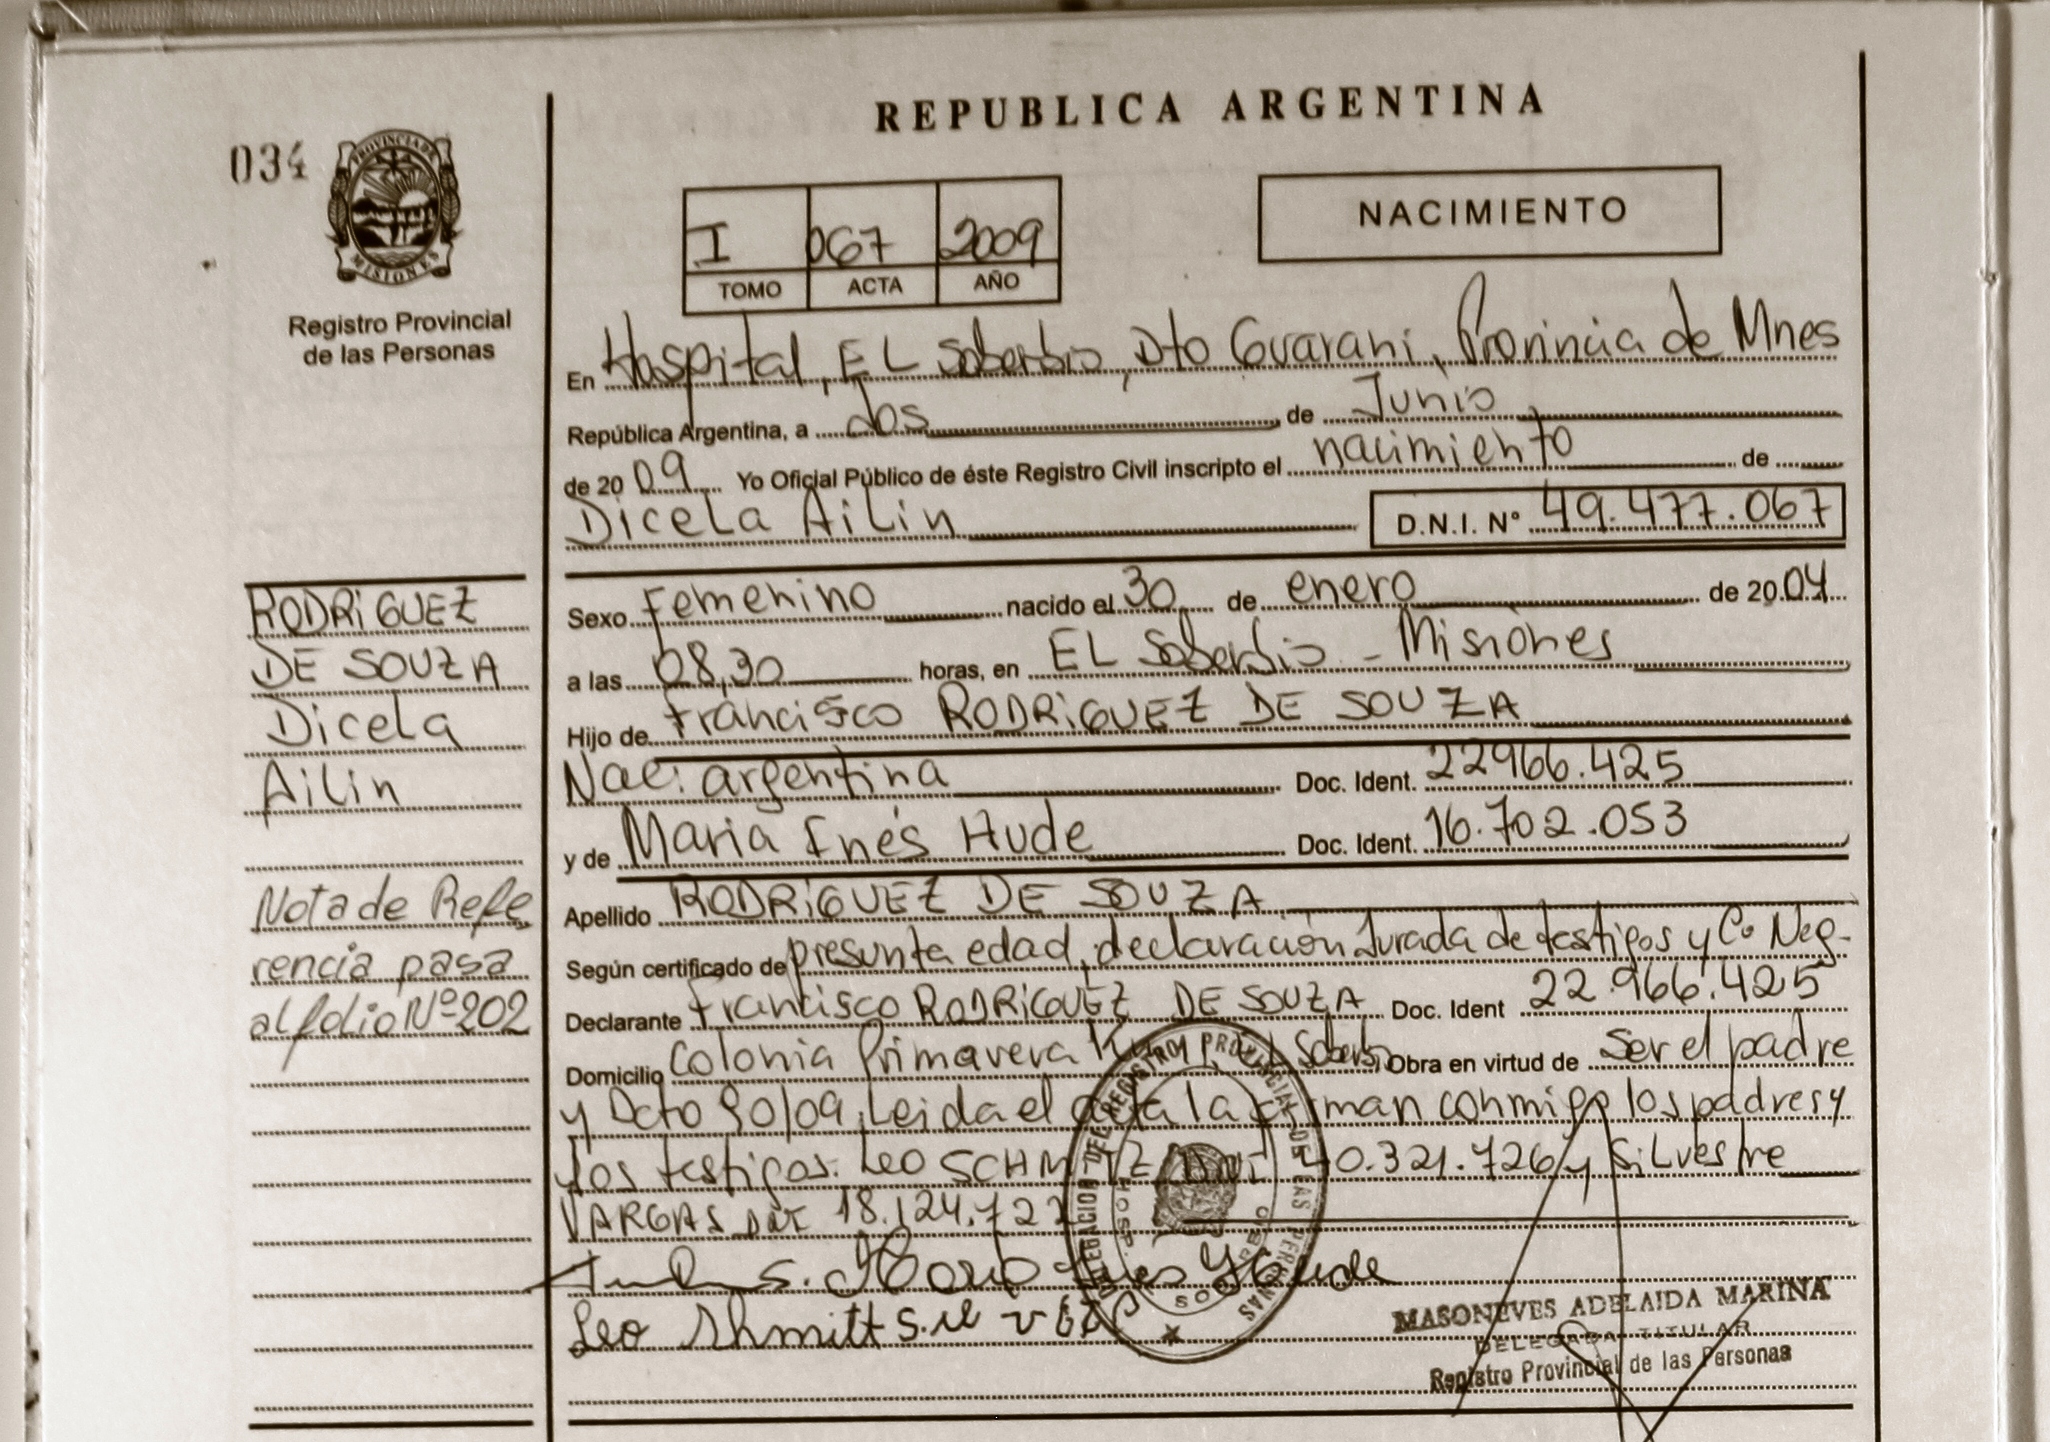 REPUBLICA ARGENTINA
034
PROVINCIA DE
MISIONES
Registro Provincial
de las Personas
NACIMIENTO
I 067 2009
TOMO ACTA AÑO
En Hospital, EL Soberbio, Dto Guarani, Provincia de Mnes
República Argentina, a dos de Junio
de 2009 Yo Oficial Público de éste Registro Civil inscripto el nacimiento de
Dicela Ailin D.N.I. Nº 49.477.067
RODRIGUEZ
DE SOUZA
Dicela
Ailin
Nota de Refe
rencia pasa
al folio Nº 202
Sexo Femenino nacido el 30 de enero de 2004
a las 08,30 horas, en EL Soberbio - Misiones
Hijo de Francisco RODRIGUEZ DE SOUZA
Nac: argentina Doc. Ident. 22966.425
y de Maria Inés Hude Doc. Ident. 16.702.053
Apellido RODRIGUEZ DE SOUZA
Según certificado de presunta edad, declaración Jurada de testigos y Co Neg-
Declarante Francisco RODRIGUEZ DE SOUZA Doc. Ident 22.966.425
Domicilio Colonia Primavera EL Soberbio Obra en virtud de ser el padre
y Dcto 90/09, Leida el acta la firman conmigo los padres y
los testigos. Leo SCHMITZ DNI 40.321.726 y Silvestre
VARGAS DNI 18.124.722
Maria Ines Hude
Leo Shmitt
DELEGACION DEL REGISTRO PROVINCIAL DE LAS PERSONAS
SOBERBIO
MASONEVES ADELAIDA MARINA
DELEGADA TITULAR
Registro Provincial de las Personas